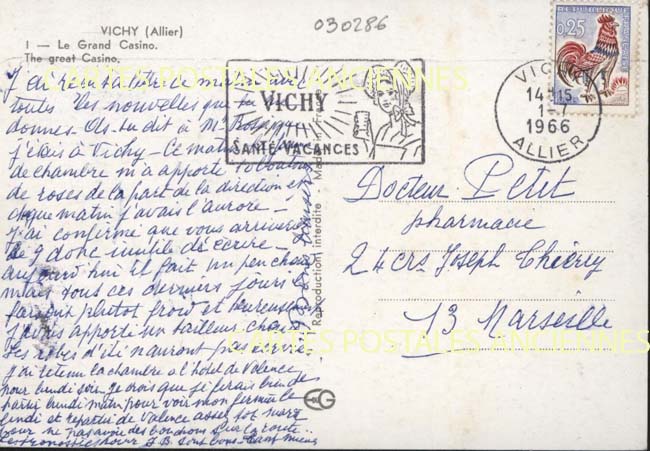 030286
VICHY (Allier)
1 — Le Grand Casino.
The great Casino.
0,25
VICHY
14H15
1-7
1966
ALLIER
VICHY
SANTÉ-VACANCES
CARTES POSTALES ANCIENNES
J'ai reçu ta lettre ce matin avec
toutes les nouvelles que tu
donnes. As-tu dit à Mr
j'étais à Vichy - Ce matin
de chambre m'a apporté 10 boutons
de roses de la part de la direction et
chaque matin j'avais l'aurore -
J'ai confirmé que vous arriverez
le 9 donc inutile d'écrire -
aujourd'hui il fait un peu chaud
mais tous ces derniers jours il
faisait plutôt froid et heureusement
j'avais apporté un tailleur chaud
Les robes d'été n'auront pas servi
J'ai retenu la chambre à l'hôtel de Valence
pour lundi soir - je crois que je ferais bien de
partir lundi matin pour voir mon fermier le
lundi et repartir de Valence assez tôt mardi
pour ne pas avoir des bouchons sur la route -
sont bons - tant mieux
Reproductions interdites
Docteur Petit
pharmacie
24 crs Joseph Thierry
13 Marseille
CARTES POSTALES ANCIENNES